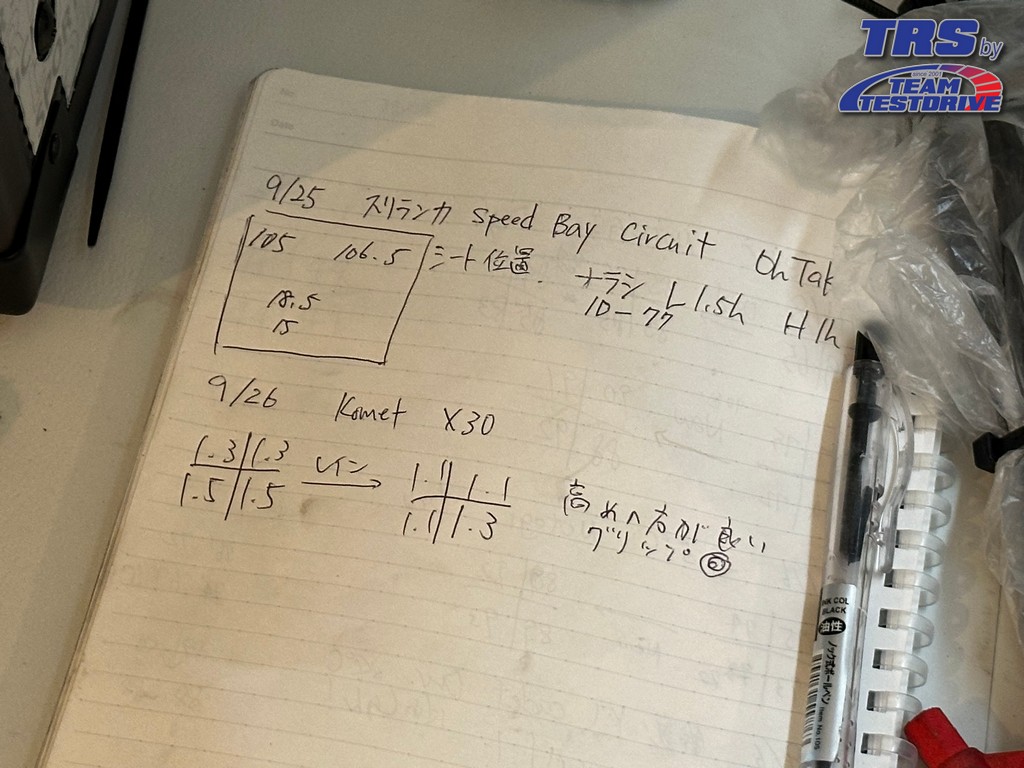 TRS by
since 2001
TEAM
TESTDRIVE
No.
Date
9/25 スリランカ Speed Bay Circuit Oh Tak
105 106.5 シート位置.
18.5
15
ナラシ L 1.5h H 1h
10-77
9/26 Komet X30
1.3 1.3 レイン 1.1 1.1
1.5 1.5 1.1 1.3
高めの方が良い
グリップ ◎
INK COL
BLACK
油性
ノック式ボールペン
Item No 105